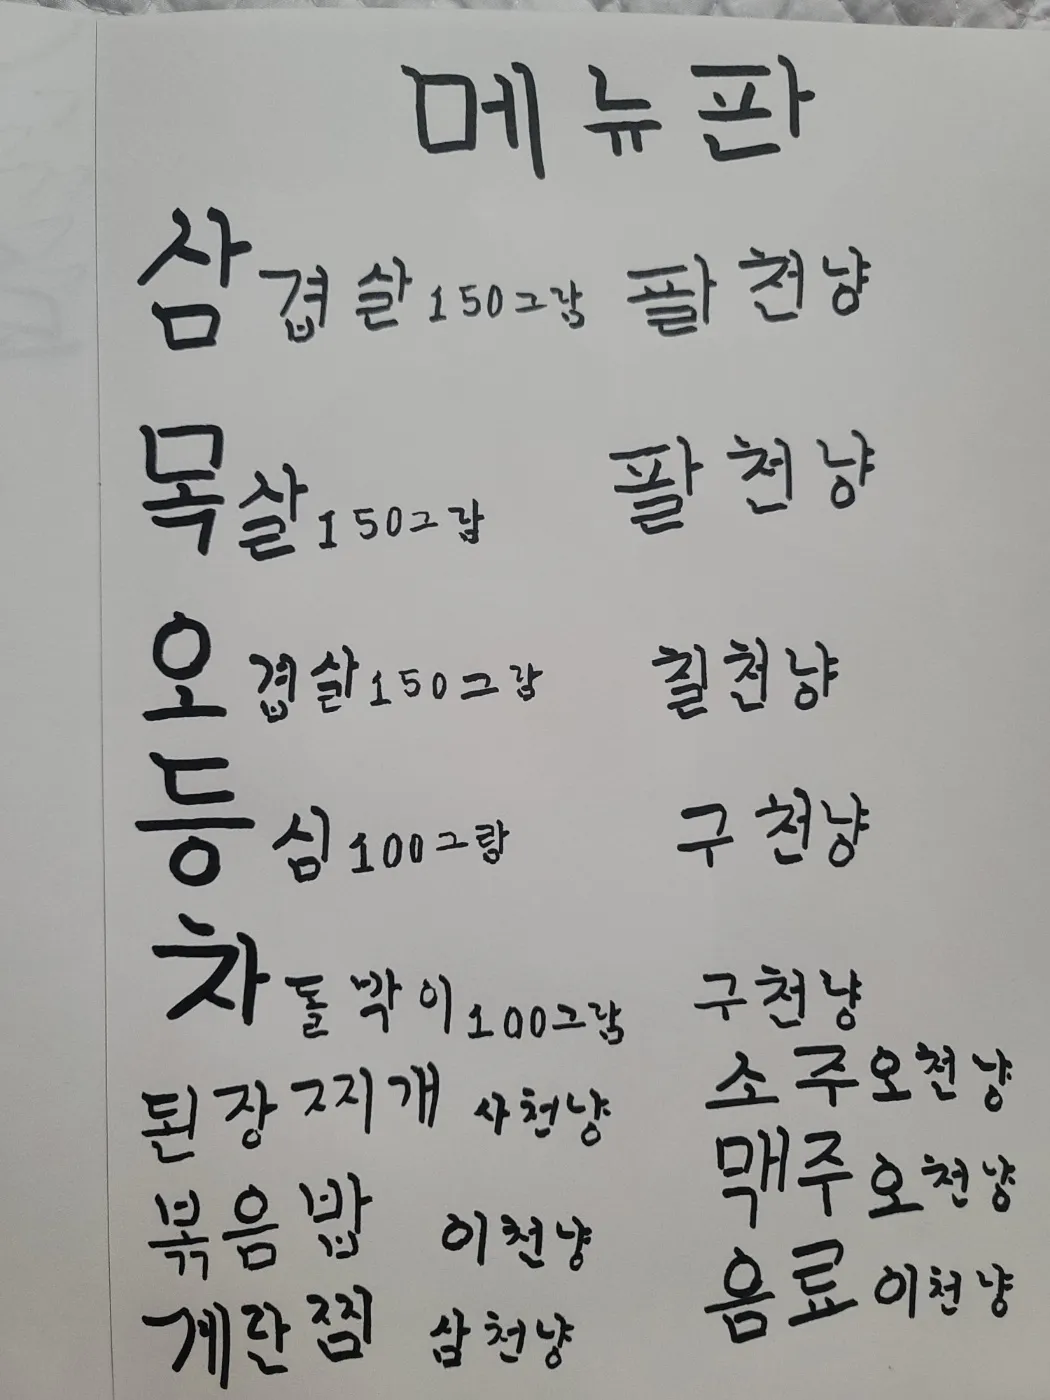 메뉴판
삼겹살 150그람 팔천냥
목살 150그람 팔천냥
오겹살 150그람 칠천냥
등심 100그람 구천냥
차돌박이 100그람 구천냥
된장찌개 사천냥 소주 오천냥
볶음밥 이천냥 맥주 오천냥
계란찜 삼천냥 음료 이천냥